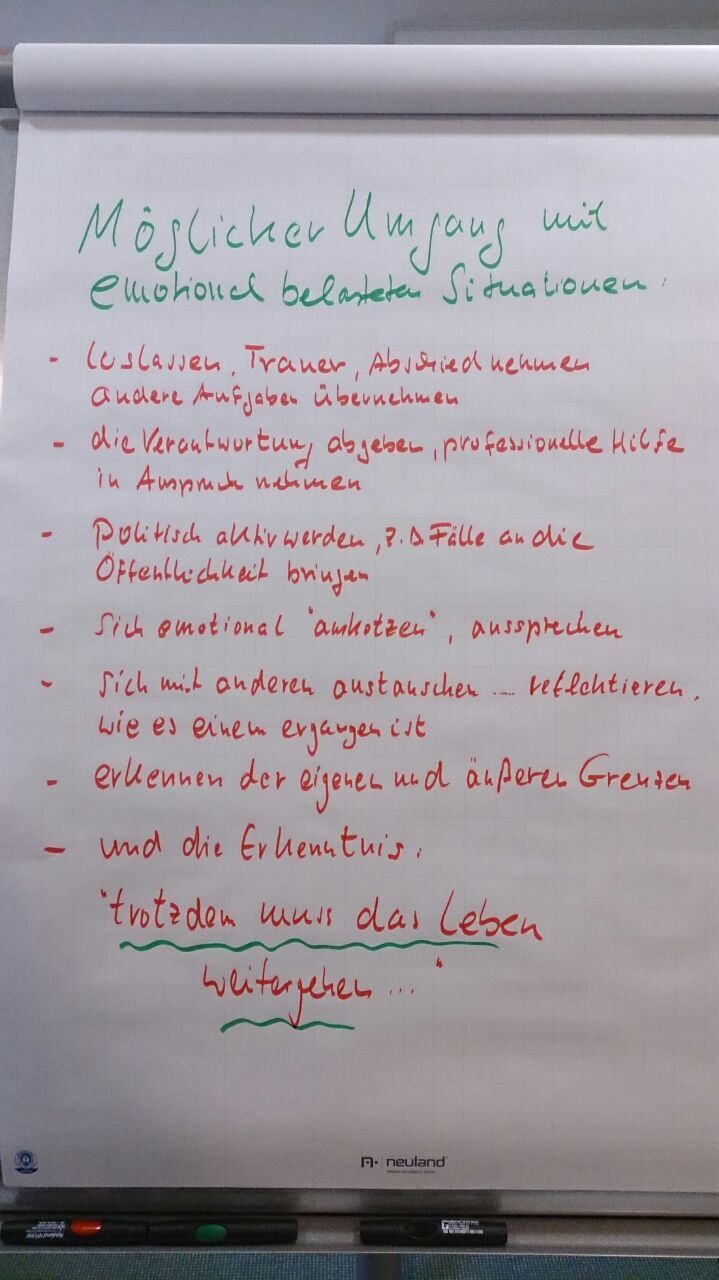 Möglicher Umgang mit
emotional belasteten Situationen:
- loslassen, Trauer, Abschied nehmen
andere Aufgaben übernehmen
- die Verantwortung abgeben, professionelle Hilfe
in Anspruch nehmen
- Politisch aktiv werden, z.B. Fälle an die
Öffentlichkeit bringen
- Sich emotional "auskotzen", aussprechen
- Sich mit anderen austauschen ... reflektieren,
wie es einem ergangen ist
- erkennen der eigenen und äußeren Grenzen
- und die Erkenntnis:
"trotzdem muss das Leben
weitergehen ..."
neuland
www.neuland.com